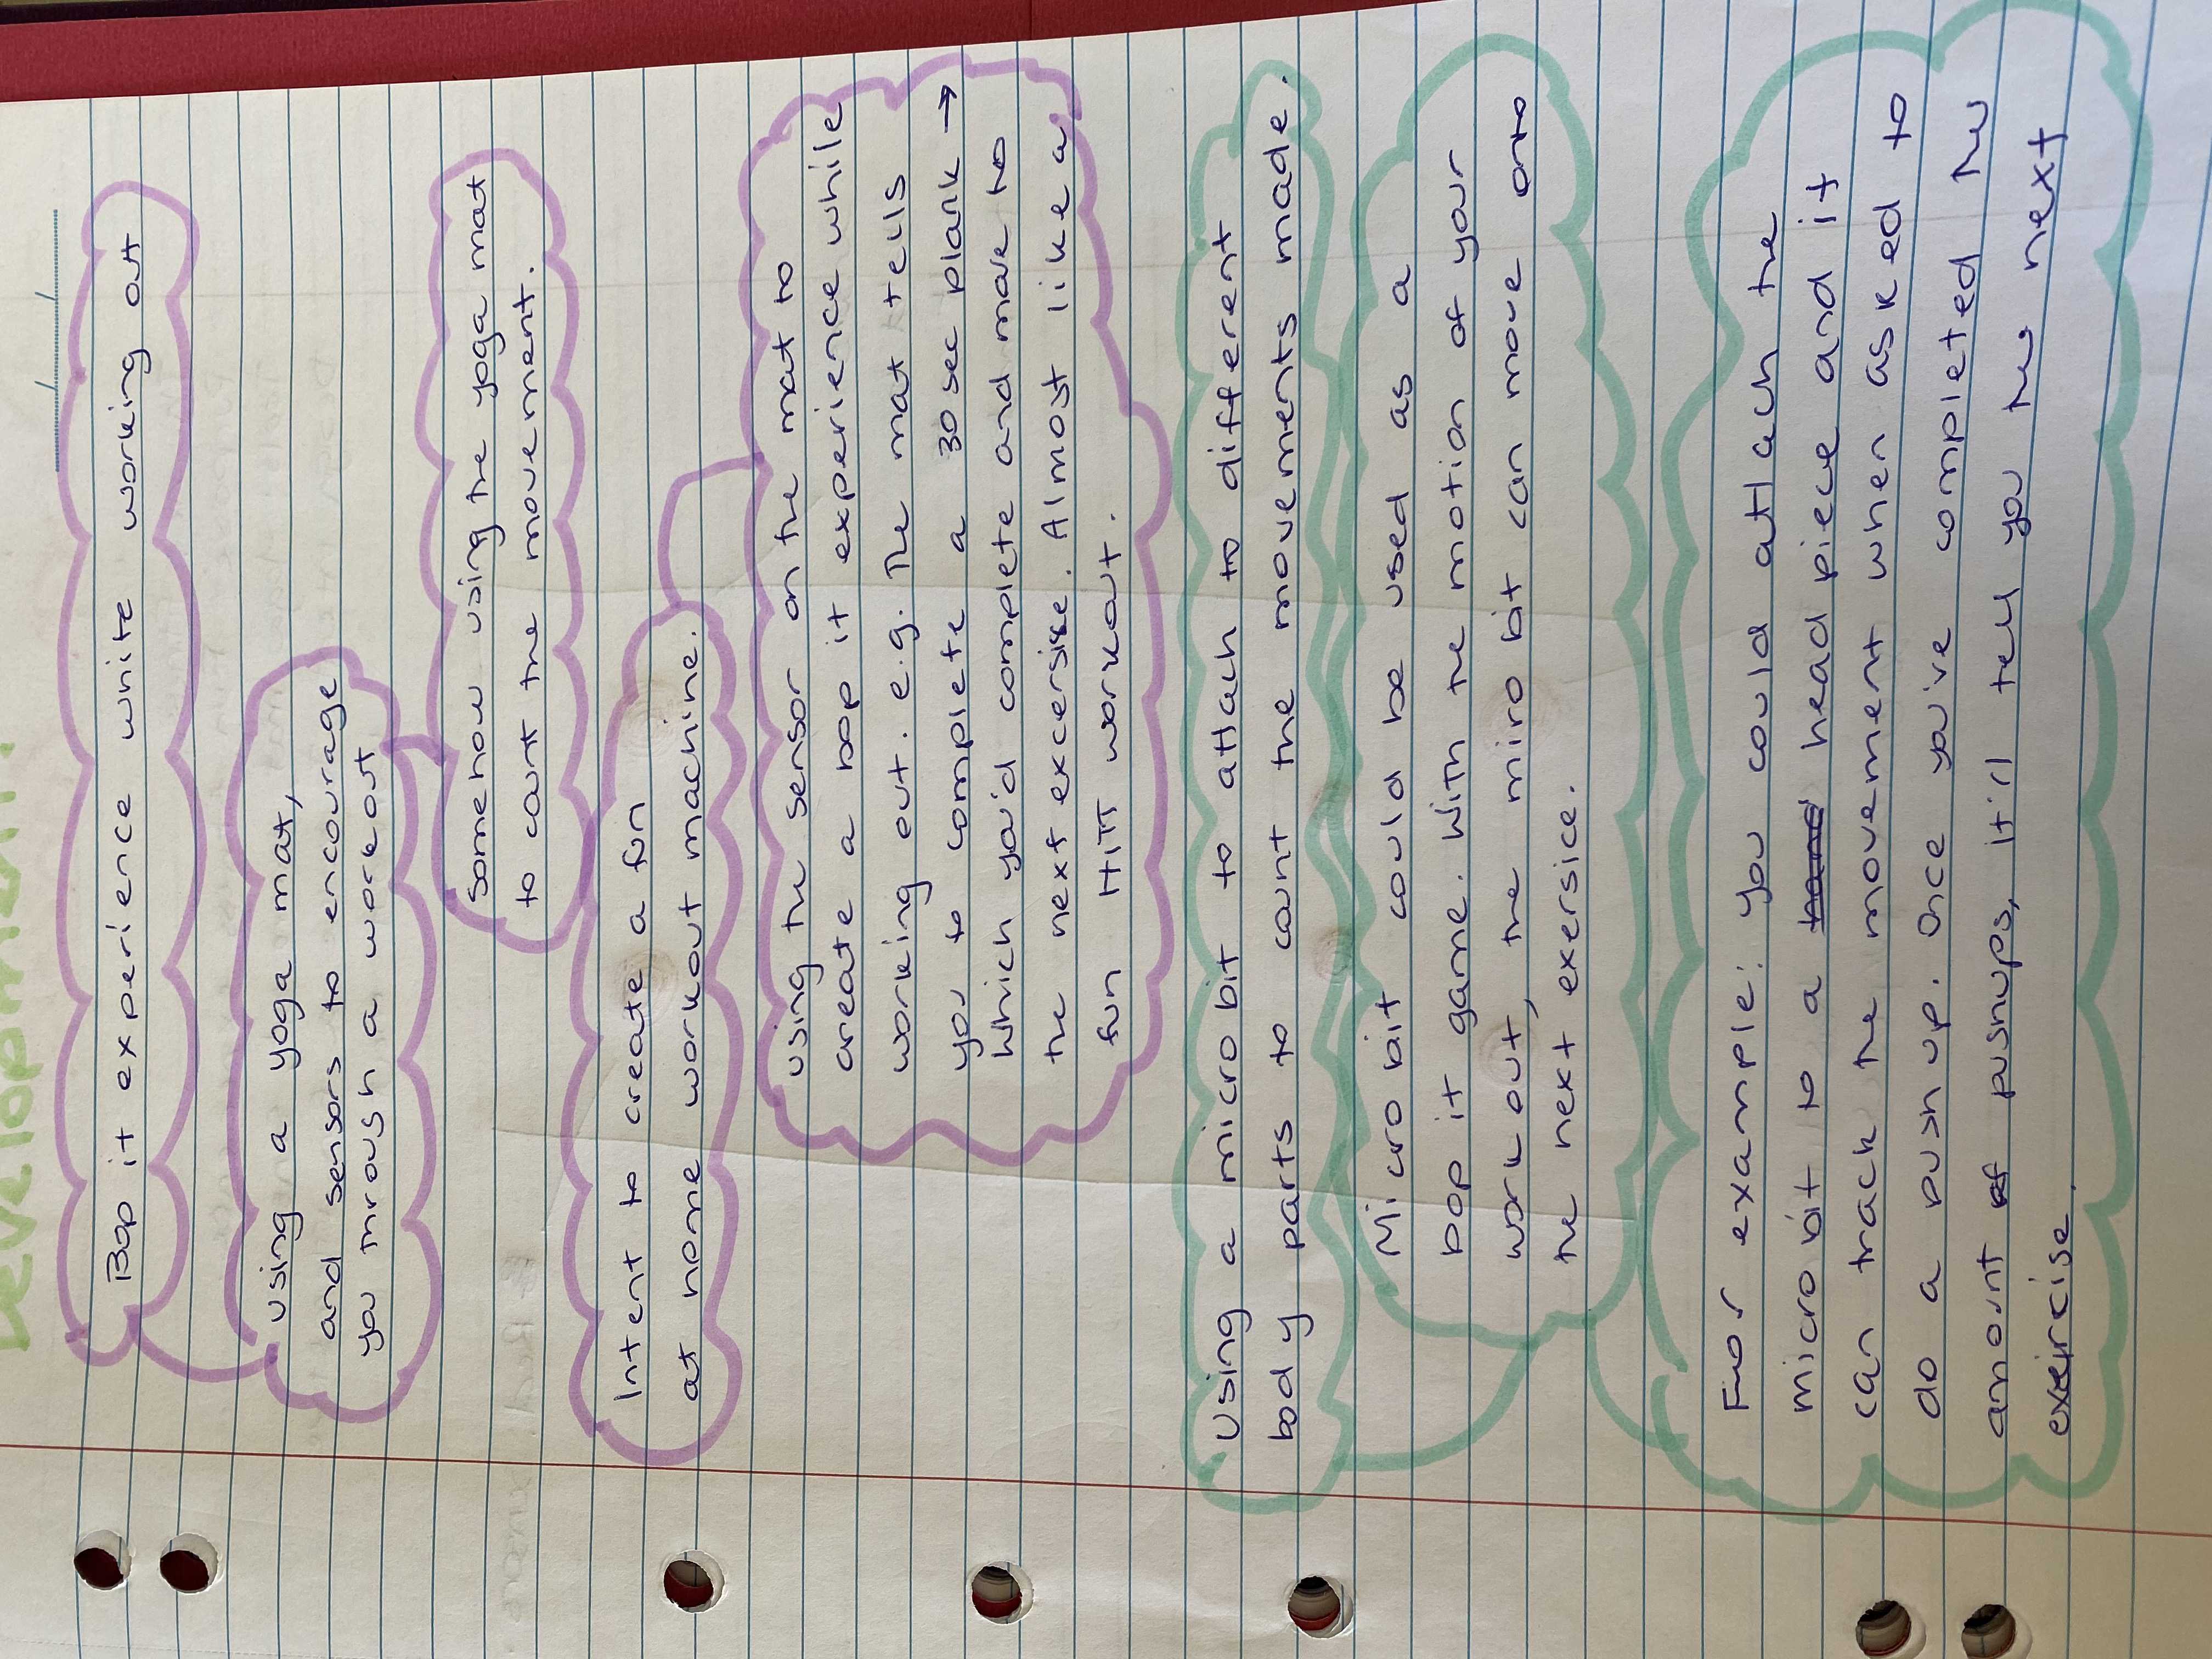 Development:
Bop it experience while working out
using a yoga mat,
and sensors to encourage
you through a workout
somehow using the yoga mat
to count the movement.
Intent to create a fun
at home workout machine.
using the sensor on the mat to
create a bop it experience while
working out. e.g. The mat tells
you to complete a 30 sec plank →
Which you'd complete and move to
the next excersise. Almost like a
fun HITT workout.
Using a micro bit to attach to different
body parts to count the movements made.
Micro bit could be used as a
bop it game. With the motion of your
work out, the miro bit can move onto
the next exersice.
For example: you could attach the
micro bit to a head piece and it
can track the movement when asked to
do a push up. Once you've completed the
amount of pushups, it'll tell you the next
exercise.